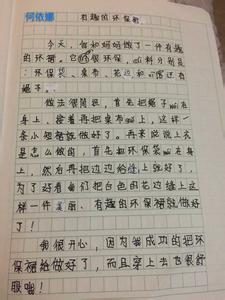 何依娜
有趣的环保裙
今天,我和妈妈做了一件有趣
的环裙。它的很环保,材料分别是
:环保袋、桌布、花边和
绳子。
做法很简单,首先把绳子wéi在
身上,接着再把桌布wéi上,这样一
条小短裙就做好了。再来说说上衣
是怎么做的,首先把环保袋wéi在身
上,然后再把花边给缝上就好了,
为了好看我们把白色的花边缝上这
样一件美丽、有趣的环保裙就做好
了!
我很开心,因为我成功的把环
保裙给做好了,而且穿上去也很舒
服哦!